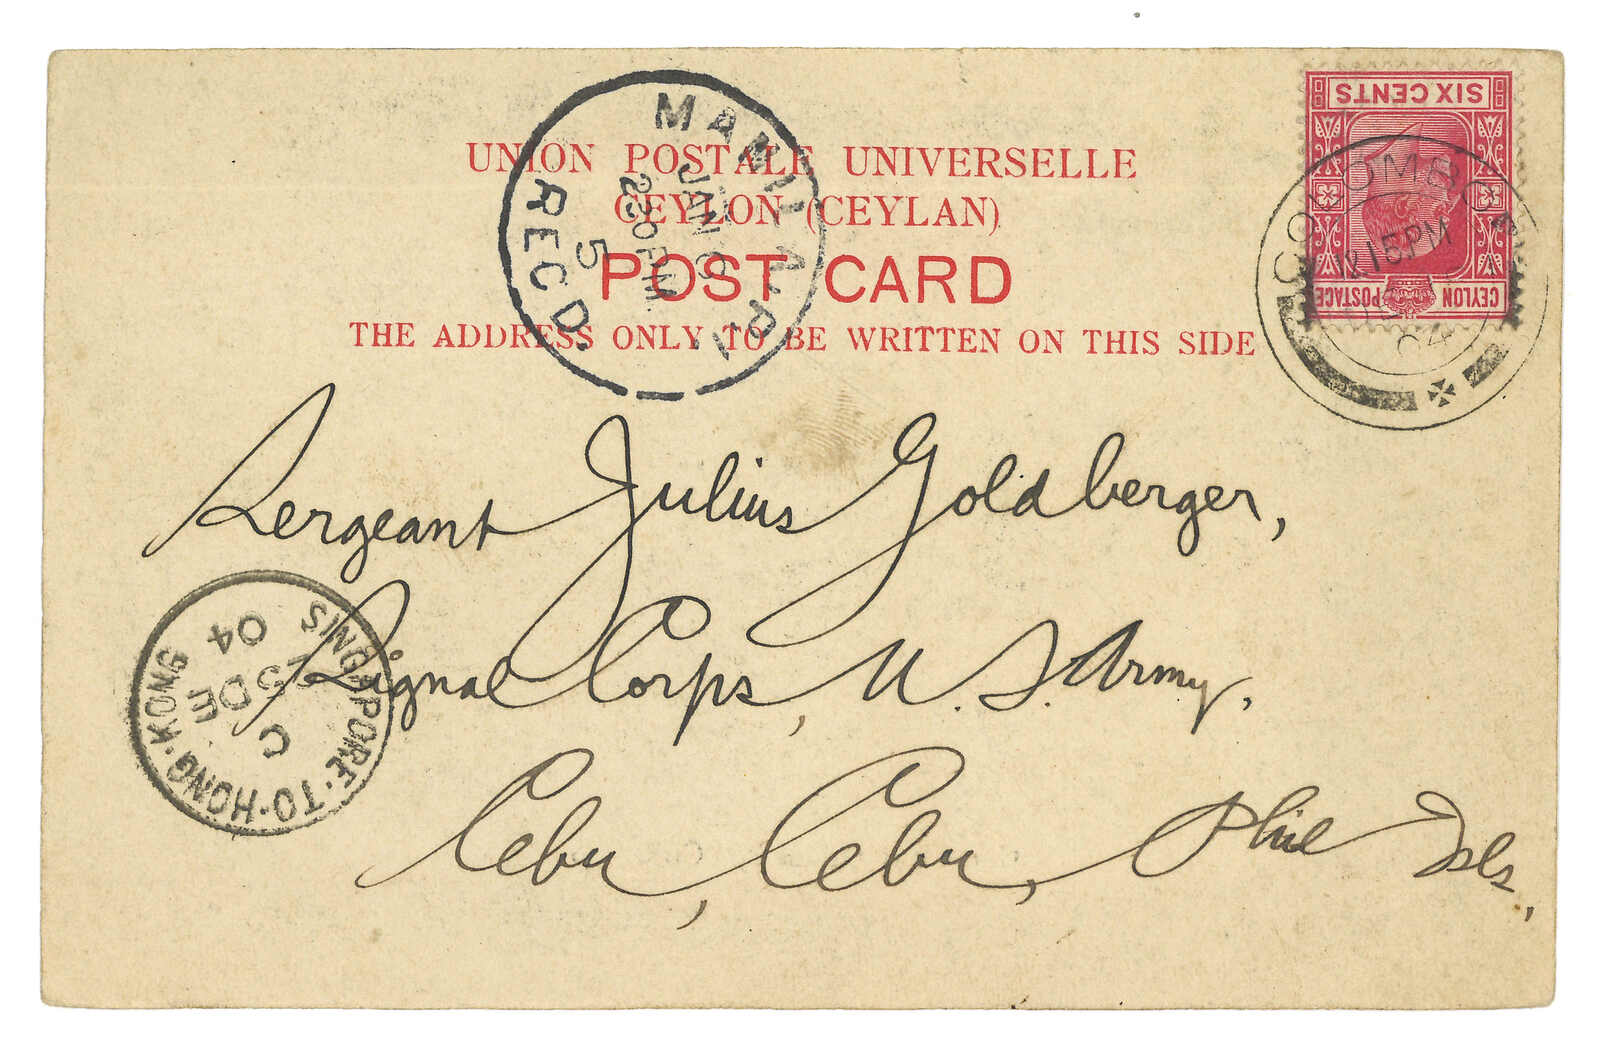 UNION POSTALE UNIVERSELLE
CEYLON (CEYLAN)
POST CARD
THE ADDRESS ONLY TO BE WRITTEN ON THIS SIDE
SIX CENTS
CEYLON POSTAGE
COLOMBO
15 PM
04
MANILA, P.I.
JAN 6
230 PM
5
REC'D.
Sergeant Julius Goldberger,
Signal Corps, U. S. Army,
Cebu, Cebu, Phil Isls,
SINGAPORE·TO·HONG·KONG
C
DE
04